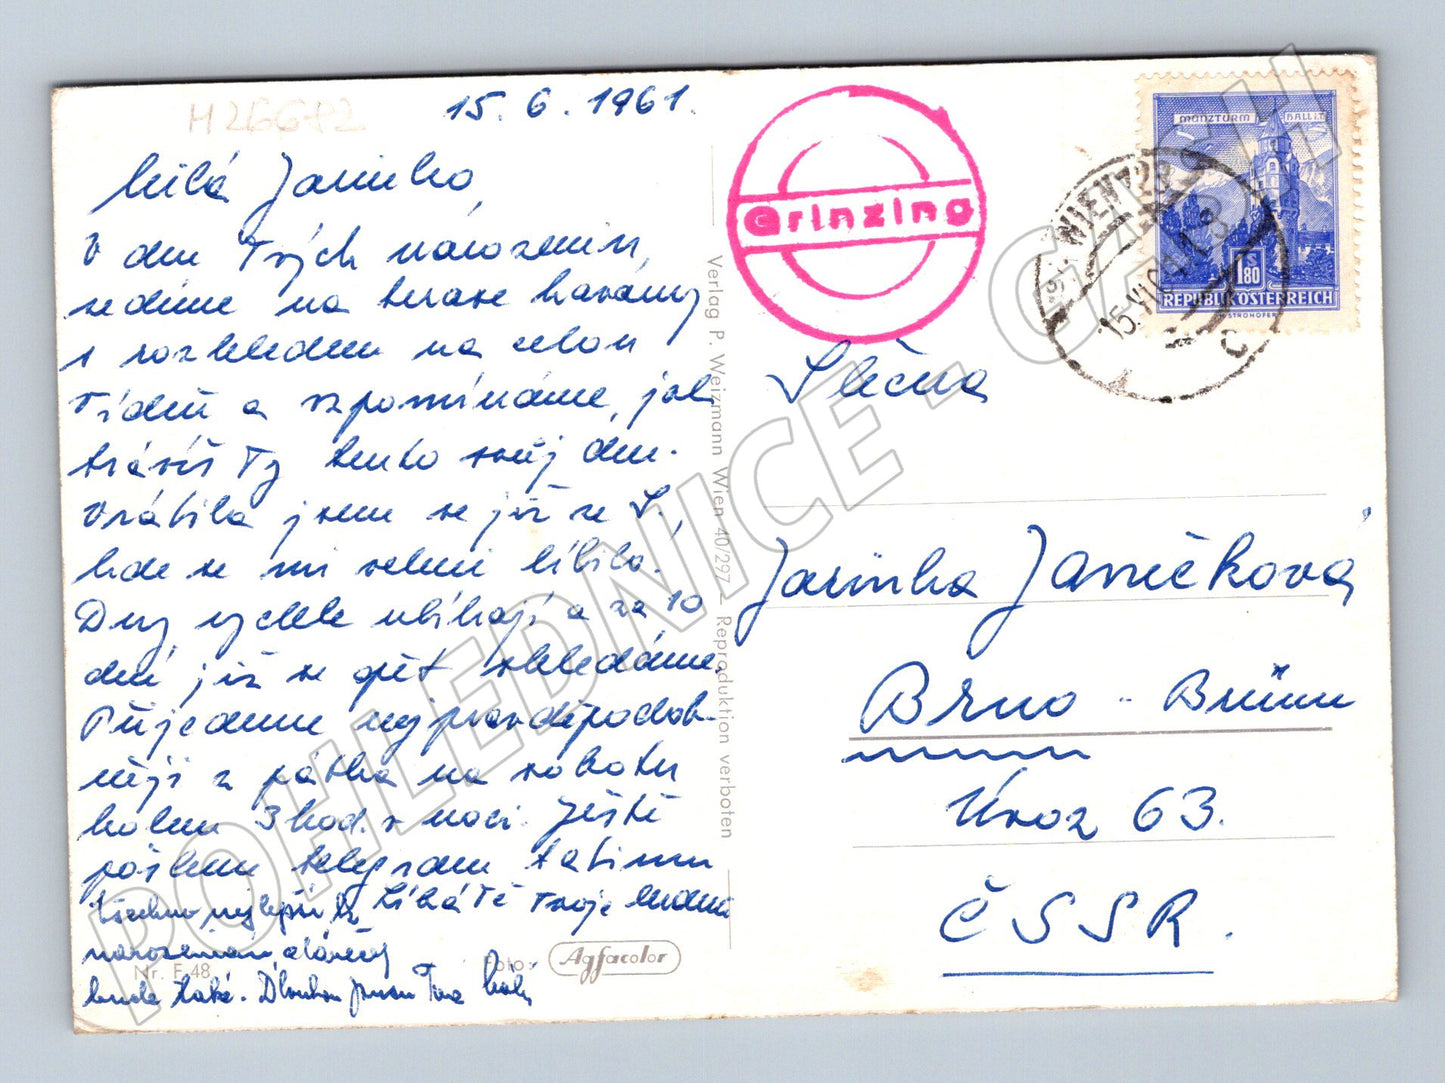 H 26682
15. 6. 1961.
Milá Janinko,
V den Tvých narozenin,
sedíme na terase kavárny
s rozhledem na celou
Vídeň a vzpomínáme, jak
trávíš Ty tento svůj den.
Vrátila jsem se již ze S.,
kde se mi velmi líbilo.
Dny rychle ubíhají a za 10
dní již se opět shledáme.
Přijedeme nejpravděpodob-
něji z pátku na sobotu
kolem 3 hod. v noci. Ještě
pošlem telegram tatínkovi
Líbá Tě Tvoje
Všechno nejlepší k
narozeninám, a
bude také.
Grinzing
MÜNZTURM HALL I.T.
S 1.80
REPUBLIK ÖSTERREICH
STROHOFER
WIEN
15.VI.61
C
Slečna
Janinka Janíčková
Brno - Brünn
Úvoz 63.
ČSSR.
Verlag P. Weizmann Wien 40/297 - Reproduktion verboten
Nr. F 48
Foto: Agfacolor
POHLEDNICE - GASH